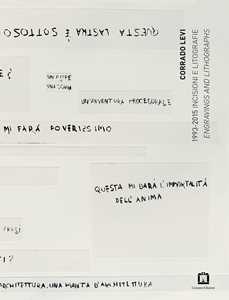 QUESTA LASTRA È SOTTOSO
CORRADO LEVI
1993-2015 INCISIONI E LITOGRAFIE
ENGRAVINGS AND LITHOGRAPHS
UN'AVVENTURA PROCEDURALE
MI FARÁ POVERISSIMO
QUESTA MI DARÀ L'IMMORTALITÀ
DELL'ANIMA
ARCHITETTURA, UNA PIANTA D'ARCHITETTURA